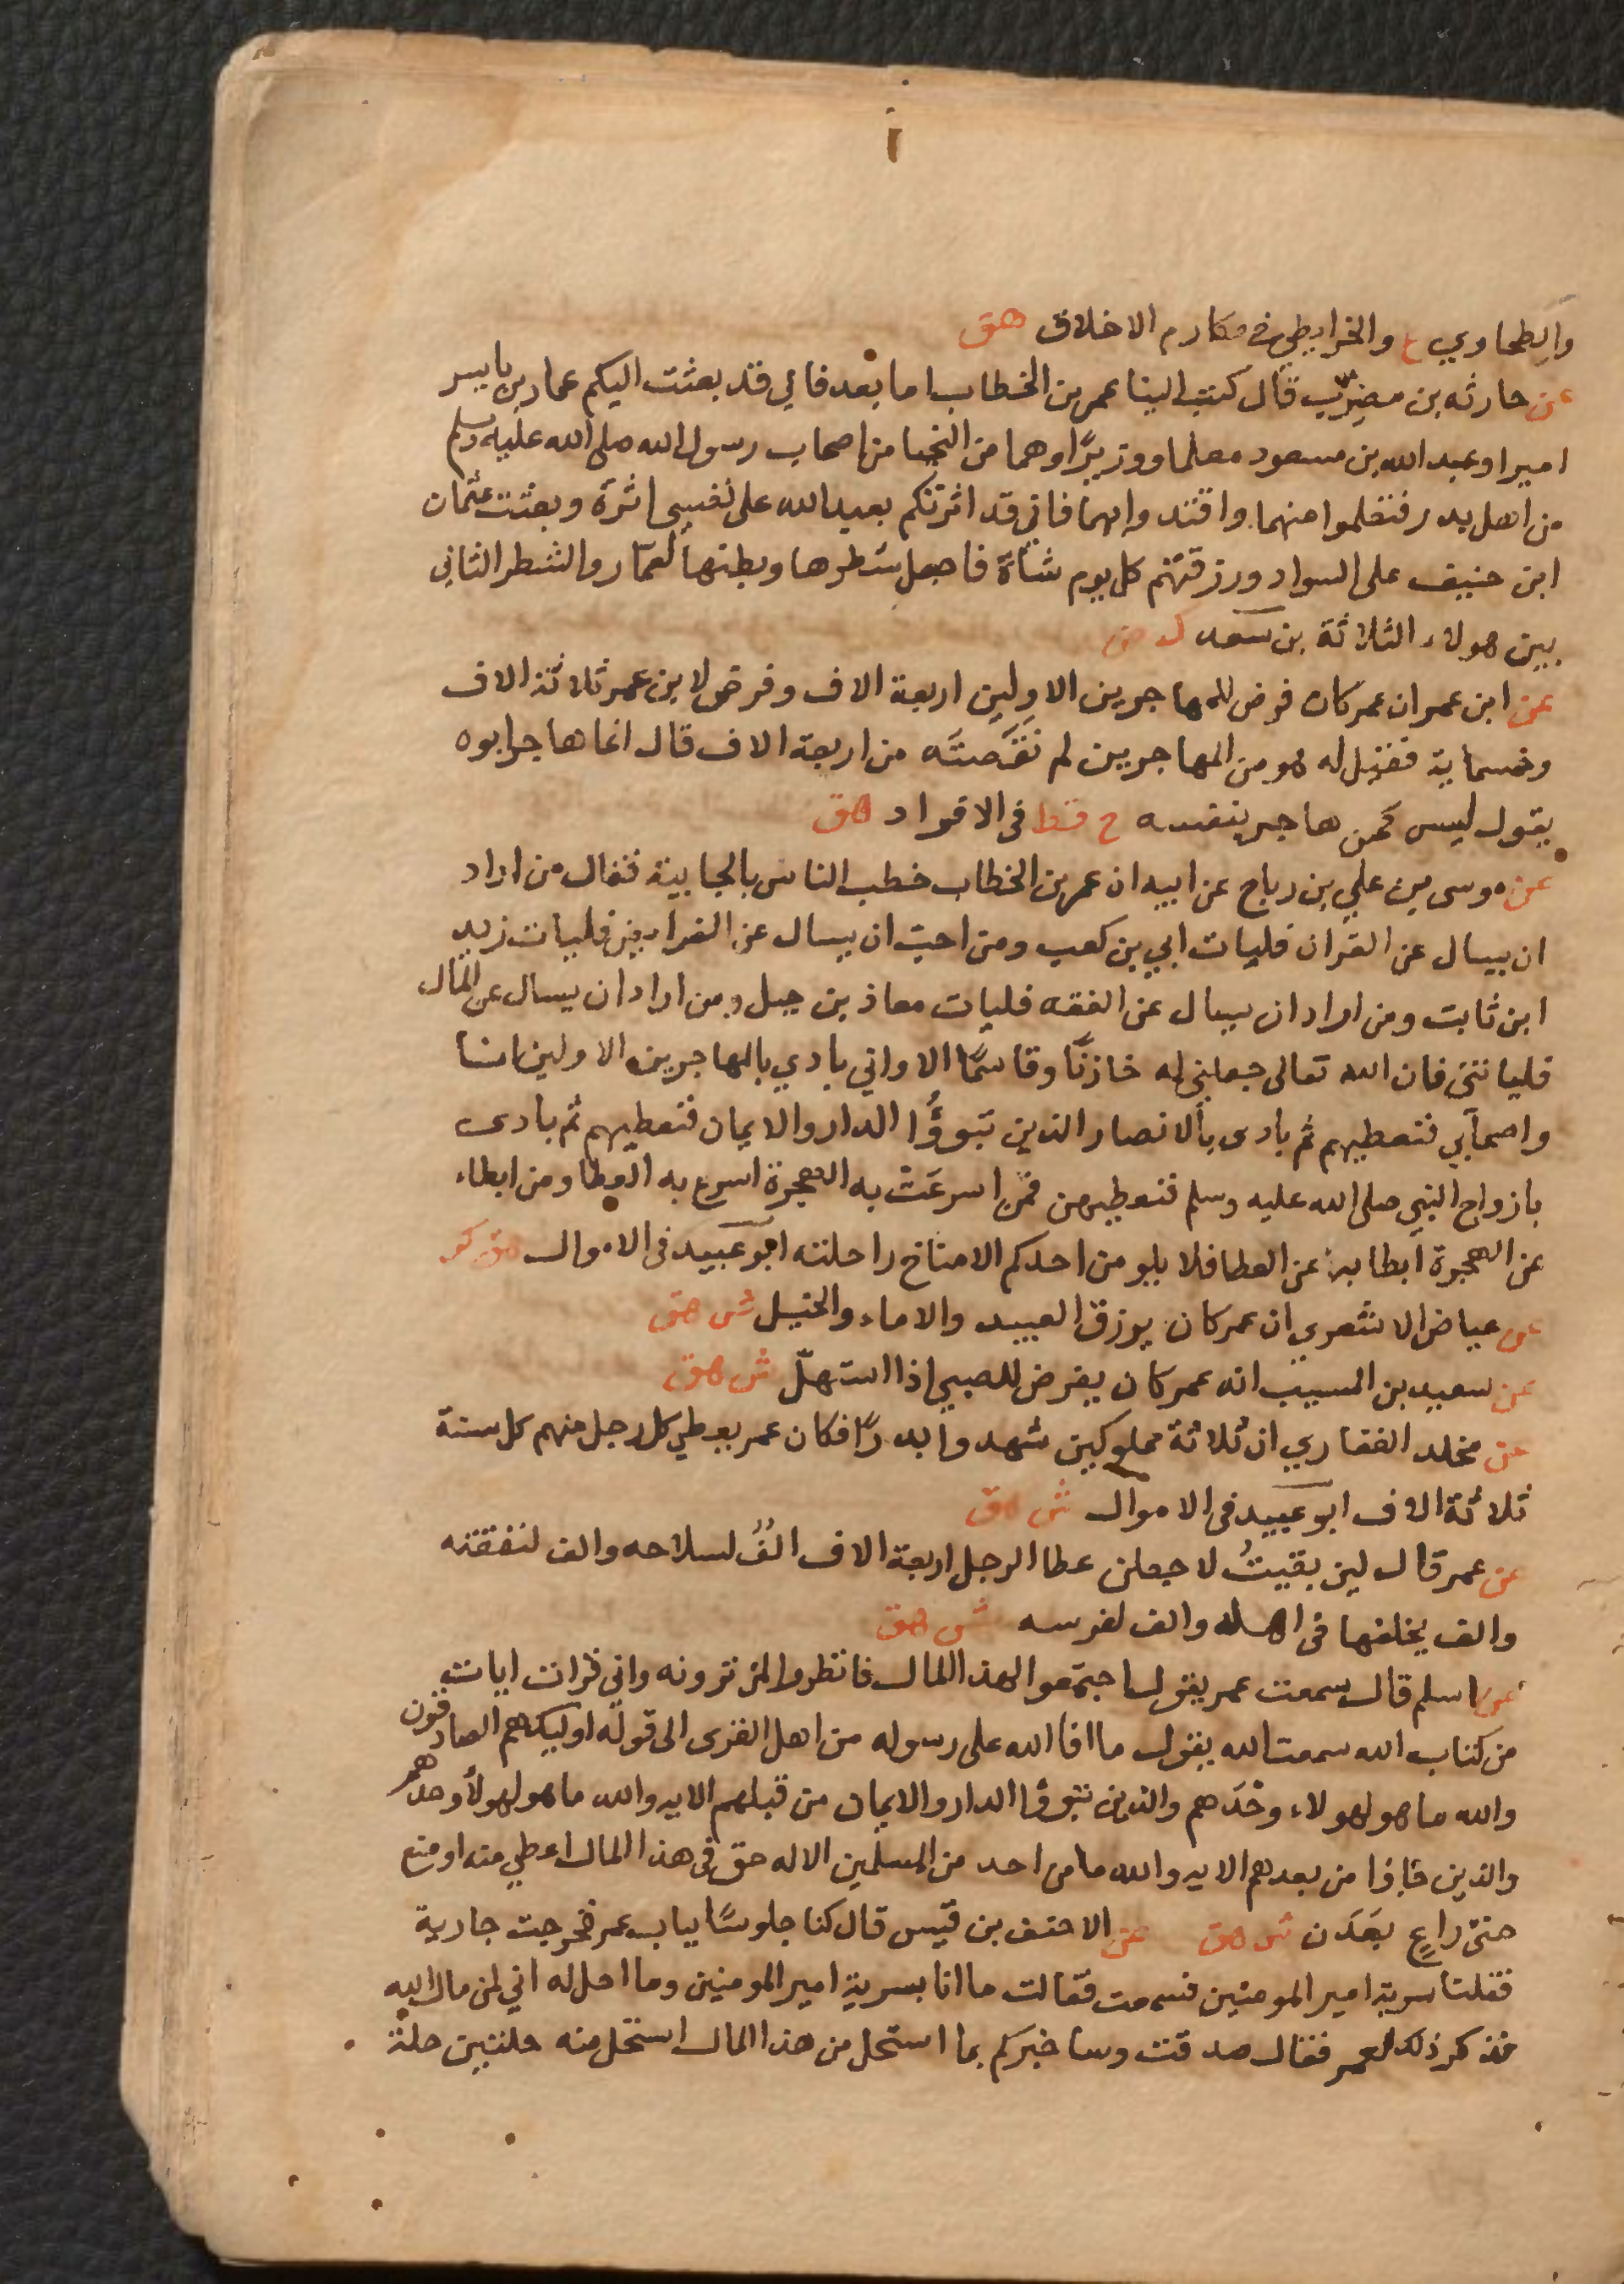 والطحاوي ع والخرايطي في مكارم الاخلاق هق
عن حارثه بن مضرّب قال كتب الينا عمر بن الخطاب اما بعد فاني قد بعثت اليكم عمار بن ياسر
اميرا وعبد الله بن مسعود معلما ووزيرًا وهما من النجبا من اصحاب رسول الله صلى الله عليه وسلم
من اهل بدر فتعلموا منهما واقتدوا بهما فاني قد اثرتكم بعبد الله على نفسي اثرة وبعثت عثمان
ابن حنيف على السواد ورزقتهم كل يوم شاة فاجعل شطرها وبطنها لعمّار والشطر الثاني
بين هولاء الثلاثة بن سعد ك ض
عن ابن عمر ان عمر كان فرض للمهاجرين الاولين اربعة الاف وفرض لابن عمر ثلاثة الاف
وخمسماية فقيل له هو من المهاجرين لم نقصته من اربعة الاف قال انما هاجر ابوه
يقول ليس كمن هاجر بنفسه خ قط في الافراد هق
عن موسى بن علي بن رباح عن ابيه ان عمر بن الخطاب خطب الناس بالجابية فقال من اراد
ان يسال عن القران فليات ابي بن كعب ومن احب ان يسال عن الفرايض فليات زيد
ابن ثابت ومن اراد ان يسال عن الفقه فليات معاذ بن جبل ومن اراد ان يسال عن المال
فلياتني فان الله تعالى جعلني له خازنًا وقاسمًا الا واني بادي بالمهاجرين الاولين انا
واصحابي فنعطيهم ثم بادى بالانصار الذين تبوؤُا الدار والايمان فنعطيهم ثم بادى
بازواج النبي صلى الله عليه وسلم فنعطيهن فمن اسرعَت به الهجرة اسرع به العطا ومن ابطاء
عن الهجرة ابطا به عن العطا فلا يلومن احدكم الا مناخ راحلته ابو عبيد في الاموال هق كر
عن عياض الاشعري ان عمر كان يرزق العبيد والاماء والخيل ش هق
عن سعيد بن المسيب انه عمر كان يفرض للصبي اذا استهلّ ش هق
عن مخلد الغفاري ان ثلاثة مملوكين شهدوا بدرًا فكان عمر يعطي كل رجل منهم كل سنة
ثلاثة الاف ابو عبيد في الاموال ش هق
عن عمر قال لين بقيتُ لاجعلن عطا الرجل اربعة الاف الفُ لسلاحه والف لنفقته
والف يخلفها في اهله والف لفرسه ش هق
عن اسلم قال سمعت عمر يقول اجتمعوا لهذا المال فانظروا لمن ترونه واني قرات ايات
من كتاب الله سمعت الله يقول ما افا الله على رسوله من اهل القرى الى قوله اوليك هم الصادقون
والله ما هو لهولاء وحدَهم والذين تبوؤا الدار والايمان من قبلهم الايه والله ما هو لهولا وحدهم
والذين جاؤا من بعدهم الايه والله ما من احد من المسلمين الا له حق في هذا المال اعطي منه او منع
حتى راعٍ بعَدَن ش هق عن الاحنف بن قيس قال كنا جلوسًا بباب عمر فخرجت جارية
فقلنا سرية امير المومنين فسمعت فقالت ما انا بسرية امير المومنين وما احل له اني لمن مال الله
فذكر ذلك لعمر فقال صدقت وساخبركم بما استحل من هذا المال استحل منه حلتين حلة